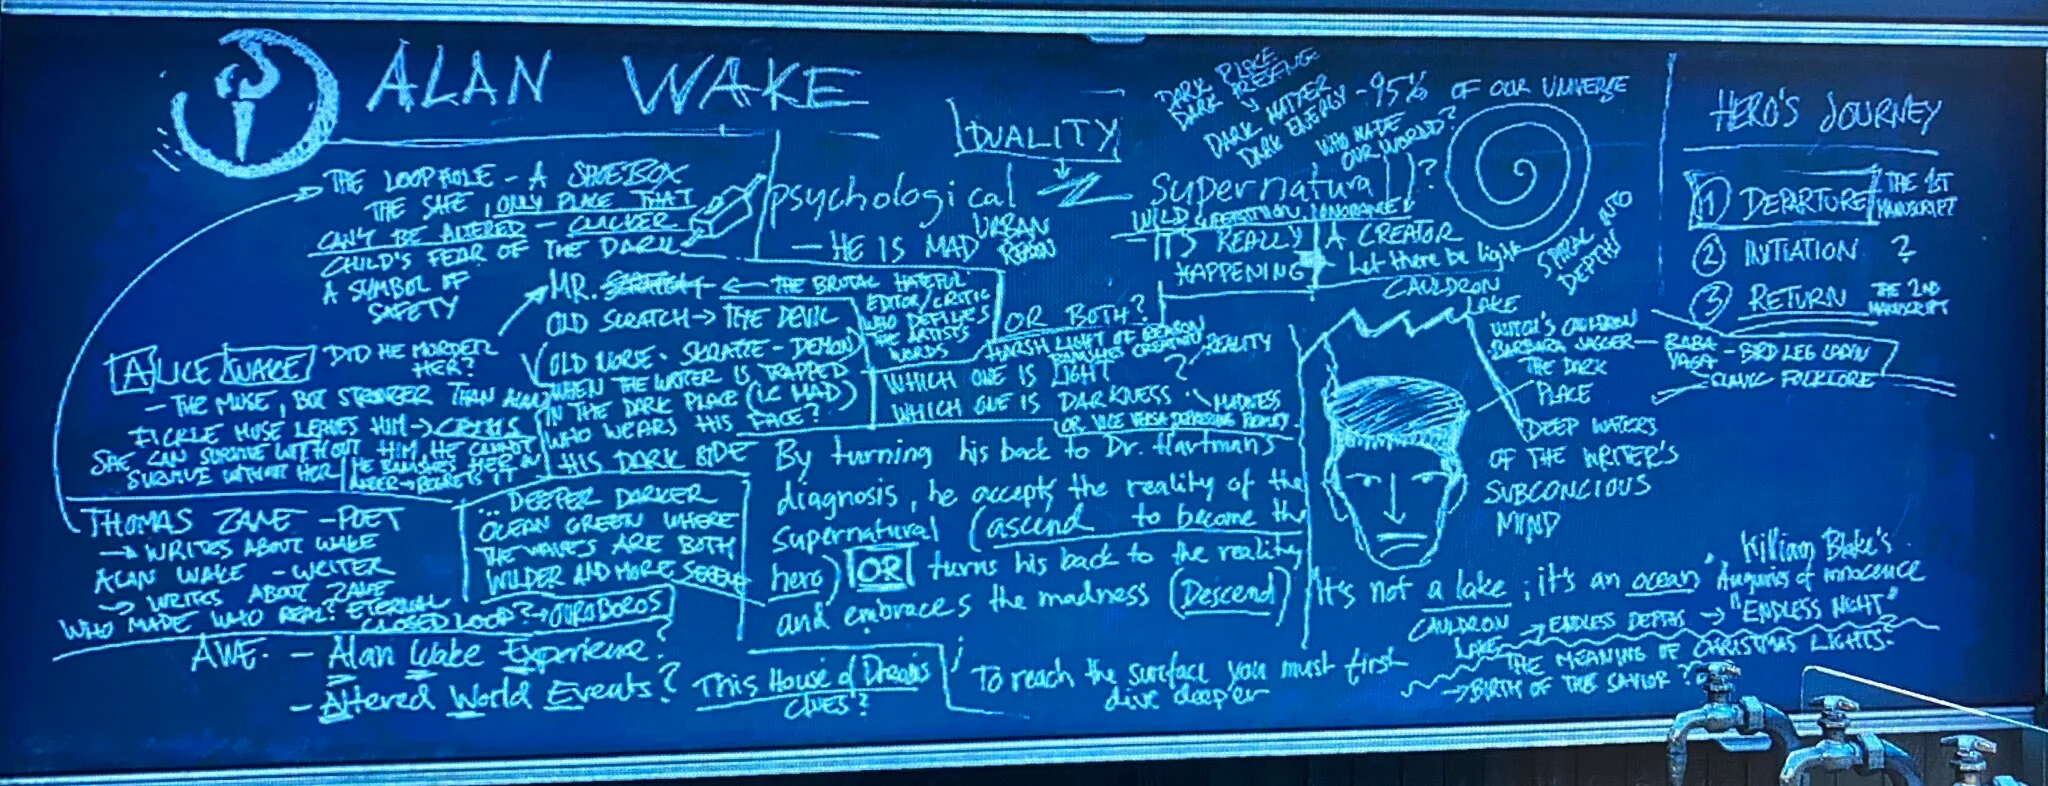 ALAN WAKE
THE LOOPHOLE - A SHOEBOX
THE SAFE, ONLY PLACE THAT
CAN'T BE ALTERED - CLICKER
CHILD'S FEAR OF THE DARK
A SYMBOL OF
SAFETY
ALICE WAKE DID HE MURDER
HER?
- THE MUSE, BUT STRONGER THAN ALAN
FICKLE MUSE LEAVES HIM → CRISIS
SHE CAN SURVIVE WITHOUT HIM, HE CANNOT
SURVIVE WITHOUT HER
HE BANISHES HER IN
ANGER → REGRETS IT
THOMAS ZANE - POET
→ WRITES ABOUT WAKE
ALAN WAKE - WRITER
→ WRITES ABOUT ZANE
WHO MADE WHO REAL? ETERNAL
CLOSED LOOP? → OUROBOROS
AWE. - Alan Wake Experience?
- Altered World Events?
MR. SCRATCH ← THE BRUTAL HATEFUL
EDITOR/CRITIC
WHO DEFILES
THE ARTISTS
WORDS
OLD SCRATCH → THE DEVIL
OLD NORSE - SKRATTE - DEMON
WHEN THE WRITER IS TRAPPED
IN THE DARK PLACE (I.E MAD)
WHO WEARS HIS FACE?
HIS DARK SIDE
... DEEPER DARKER
OCEAN GREEN WHERE
THE WAVES ARE BOTH
WILDER AND MORE SERENE
This House of Dreams
CLUES?
DUALITY
psychological
- HE IS MAD
URBAN
REASON
OR BOTH?
HARSH LIGHT OF REASON
BANISHES CREATION
WHICH ONE IS LIGHT ? REALITY
WHICH ONE IS DARKNESS - MADNESS
OR VICE VERSA DEPENDING
By turning his back to Dr. Hartman's
diagnosis, he accepts the reality of the
supernatural (ascend to become the
hero) OR turns his back to the reality
and embraces the madness (Descend)
To reach the surface you must first
dive deeper
DARK PLACE
DARK PRESENCE
DARK MATTER
DARK ENERGY - 95% OF OUR UNIVERSE
WHO MADE
OUR WORLD?
supernatural?
WILD IGNORANCE
- IT'S REALLY
HAPPENING
A CREATOR
- Let there be light
SPIRAL INTO
DEPTHS
CAULDRON
LAKE
WITCH'S CAULDRON
BARBARA JAGGER - BABA
YAGA - BIRD LEG CABIN
- SLAVIC FOLKLORE
THE DARK
PLACE
DEEP WATERS
OF THE WRITER'S
SUBCONCIOUS
MIND
It's not a lake; it's an ocean
CAULDRON
LAKE → ENDLESS DEPTHS → "ENDLESS NIGHT"
William Blake's
Auguries of Innocence
THE MEANING OF CHRISTMAS LIGHTS?
→ BIRTH OF THE SAVIOR?
HERO'S JOURNEY
1 DEPARTURE THE 1ST
MANUSCRIPT
2 INITIATION ?
3 RETURN THE 2ND
MANUSCRIPT